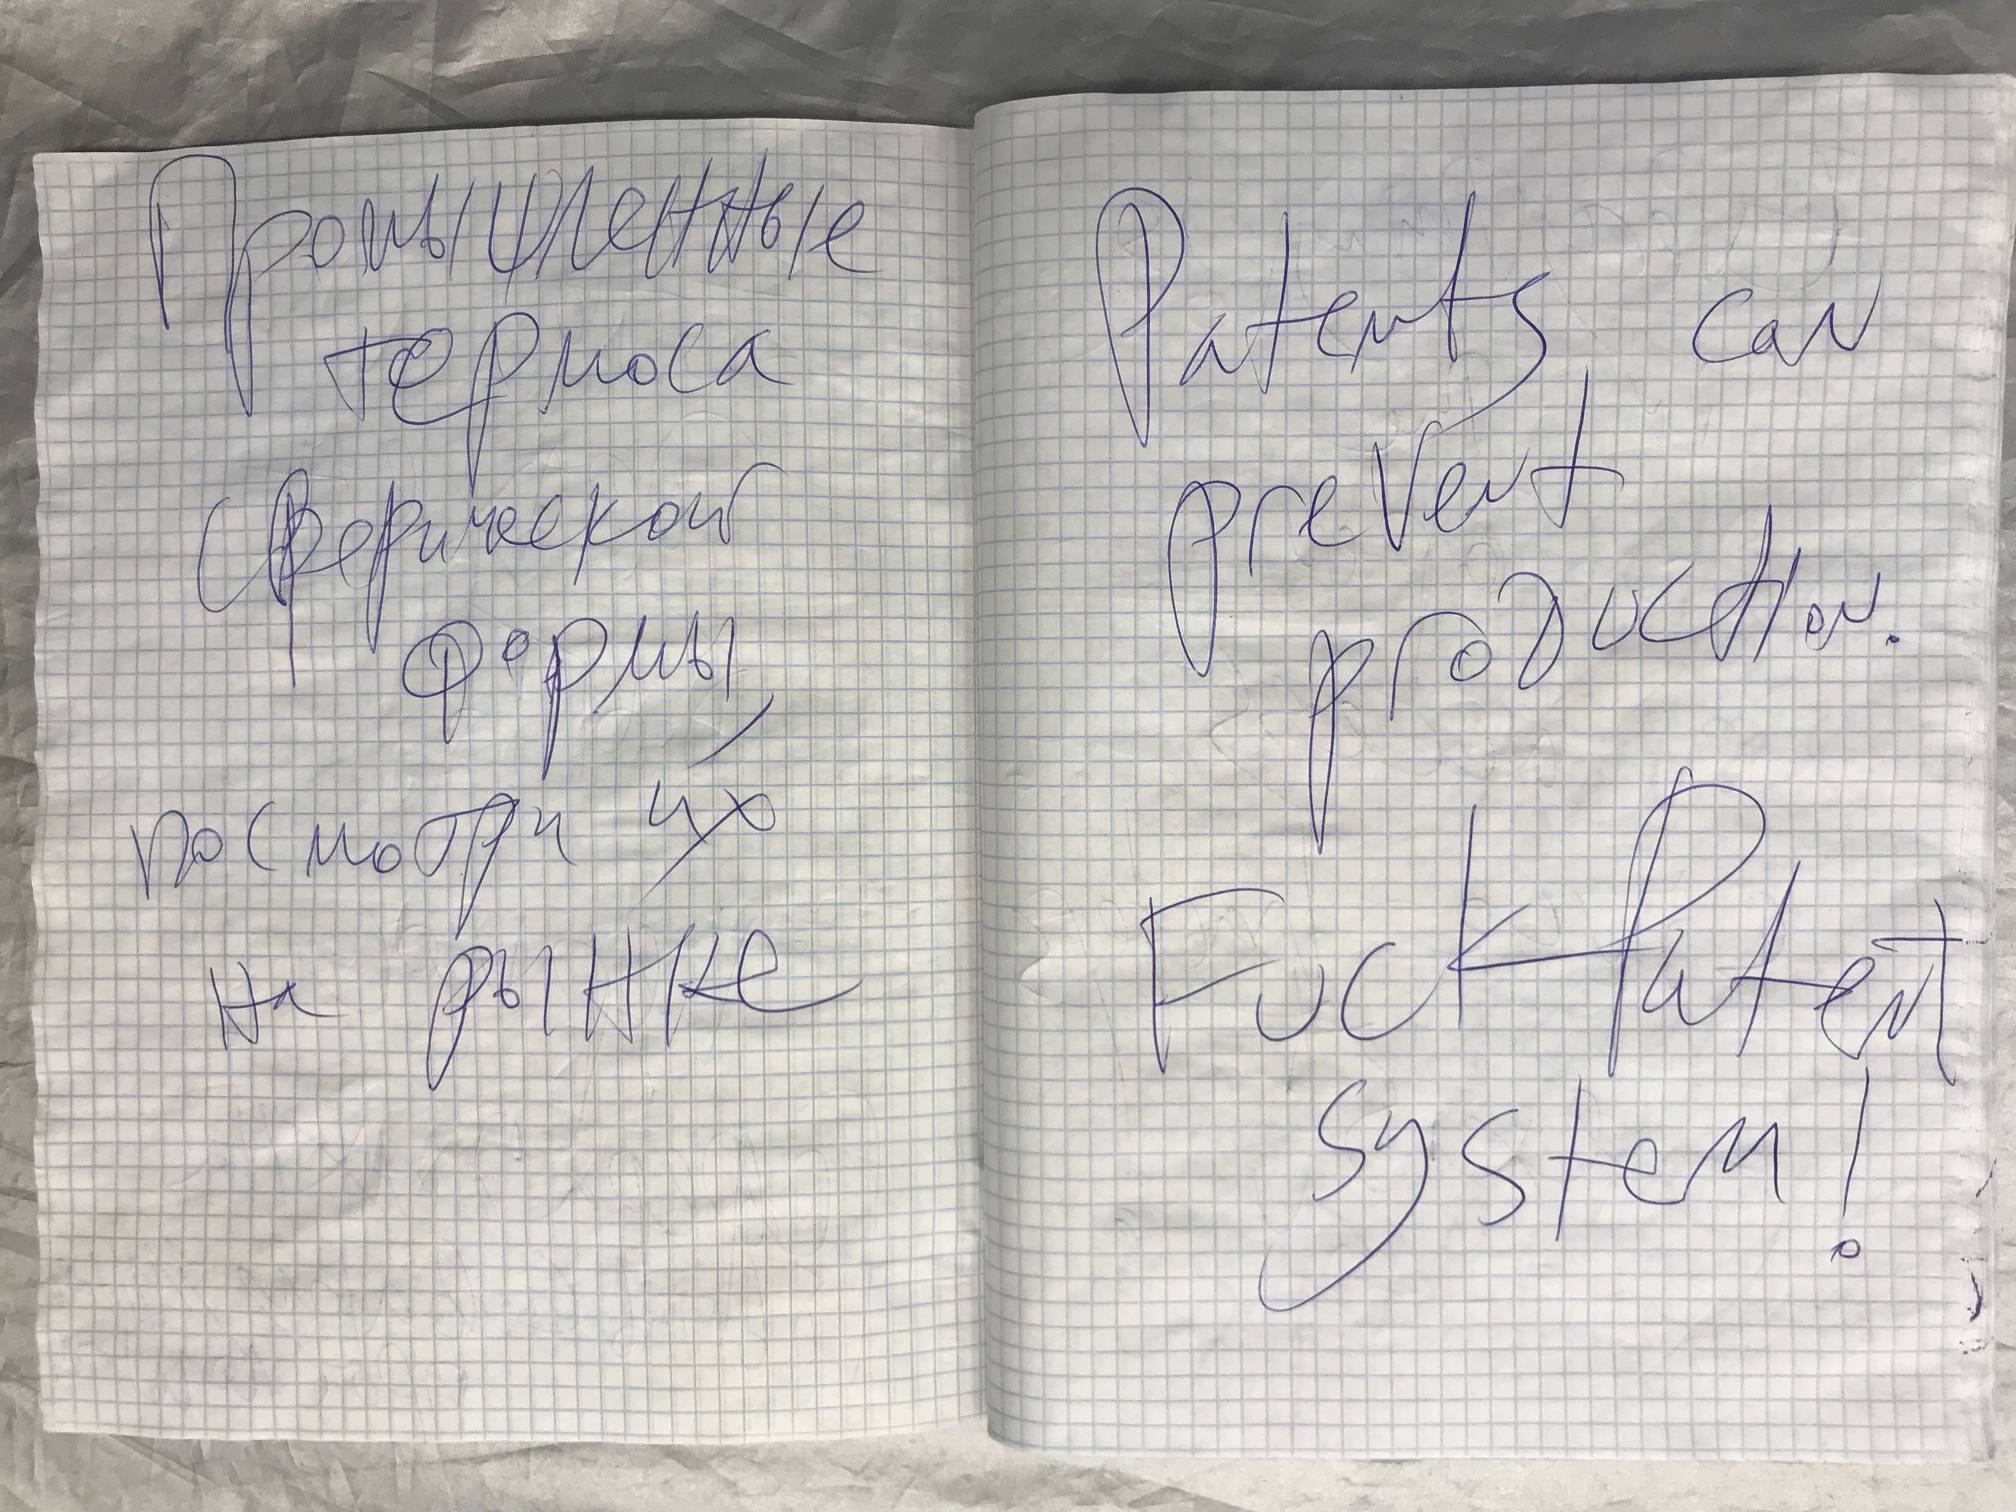 Промышленные
термоса
сферической
формы,
посмотри их
на рынке
Patents can
prevent
production.
Fuck Patent
system!